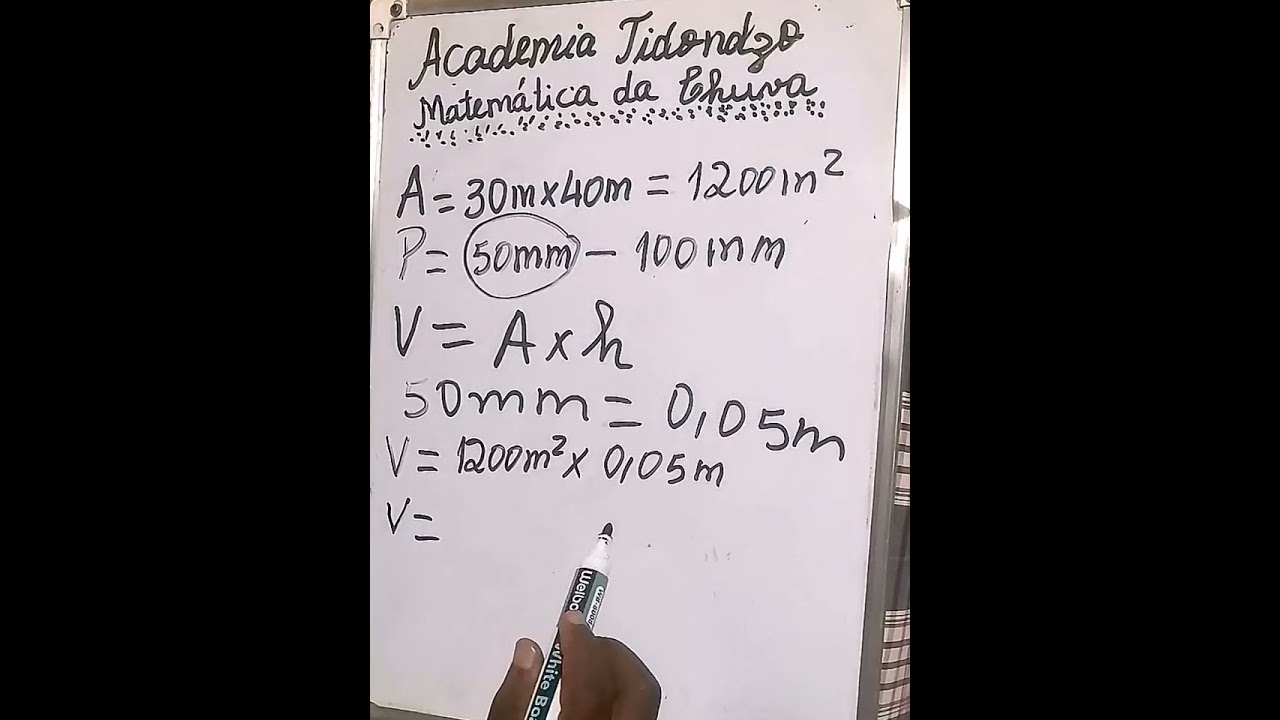 Academia Tidondzo
Matemática da Chuva
A = 30m x 40m = 1200m²
P = 50mm – 100mm
V = A x h
50mm = 0,05m
V = 1200m² x 0,05m
V =
White Bo